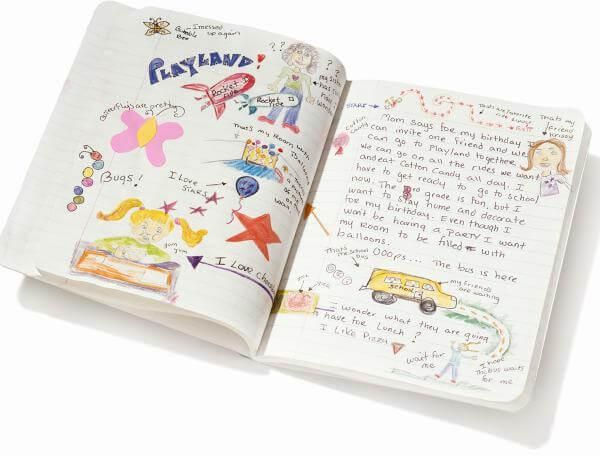 Bumble Bee
I messed up again
PLAYLAND!
? ?
?
?
my sister
has
Rocket
Ride
Rocket
Ride
Butterfly's are pretty
That's my Room with
Balloons
Bugs!
I Love
STARS
yum
yum
I LOVE Choco
START
That's my favorite
EXIT
That's my
friend
Krissy
Cotton
Candy
Mom says for my birthday I
can invite one friend and we
can go to Playland together
we can go on all the rides we want
and eat Cotton Candy all day. I
have to get ready to go to school
now. The 3rd grade is fun, but I
want to stay home and decorate
for my birthday. Even though I
wont be having a PARTY I want
my Room to be filled with
balloons.
OOOPS... The bus is here
That's the school
Bus
SCHOOL
my friends
are waiting
I wonder what they are going
to have for Lunch?
I Like Pizza
wait for
me
I hope
the bus waits
for me